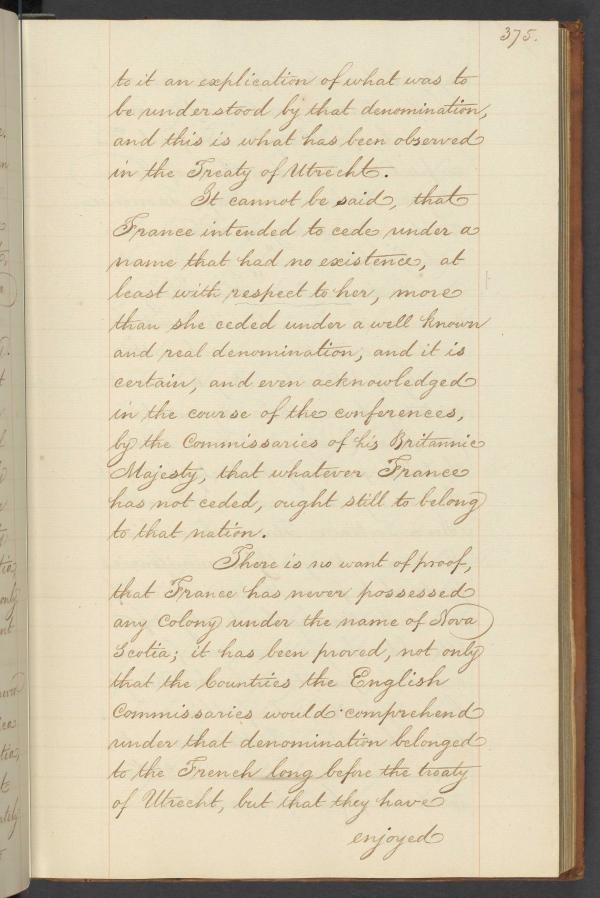 375.
to it an explication of what was to
be understood by that denomination,
and this is what has been observed
in the Treaty of Utrecht.
It cannot be said, that
France intended to cede under a
name that had no existence, at
least with respect to her, more
than she ceded under a well known
and real denomination, and it is
certain, and even acknowledged
in the course of the conferences,
by the Commissaries of his Britannic
Majesty, that whatever France
has not ceded, ought still to belong
to that nation.
There is no want of proof,
that France has never possessed
any Colony under the name of Nova
Scotia; it has been proved, not only
that the Countries the English
Commissaries would comprehend
under that denomination belonged
to the French long before the treaty
of Utrecht, but that they have
enjoyed